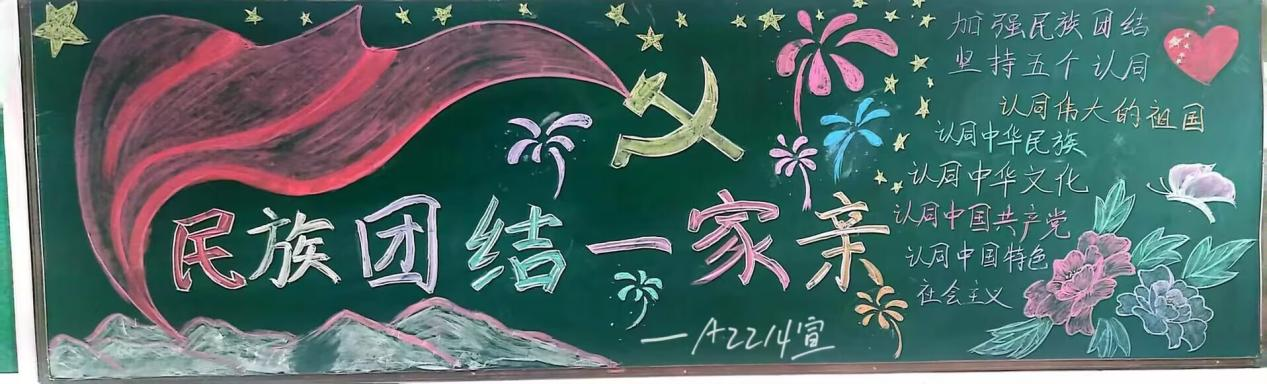 民族团结一家亲
—A2214宣
加强民族团结
坚持五个认同
认同伟大的祖国
认同中华民族
认同中华文化
认同中国共产党
认同中国特色
社会主义